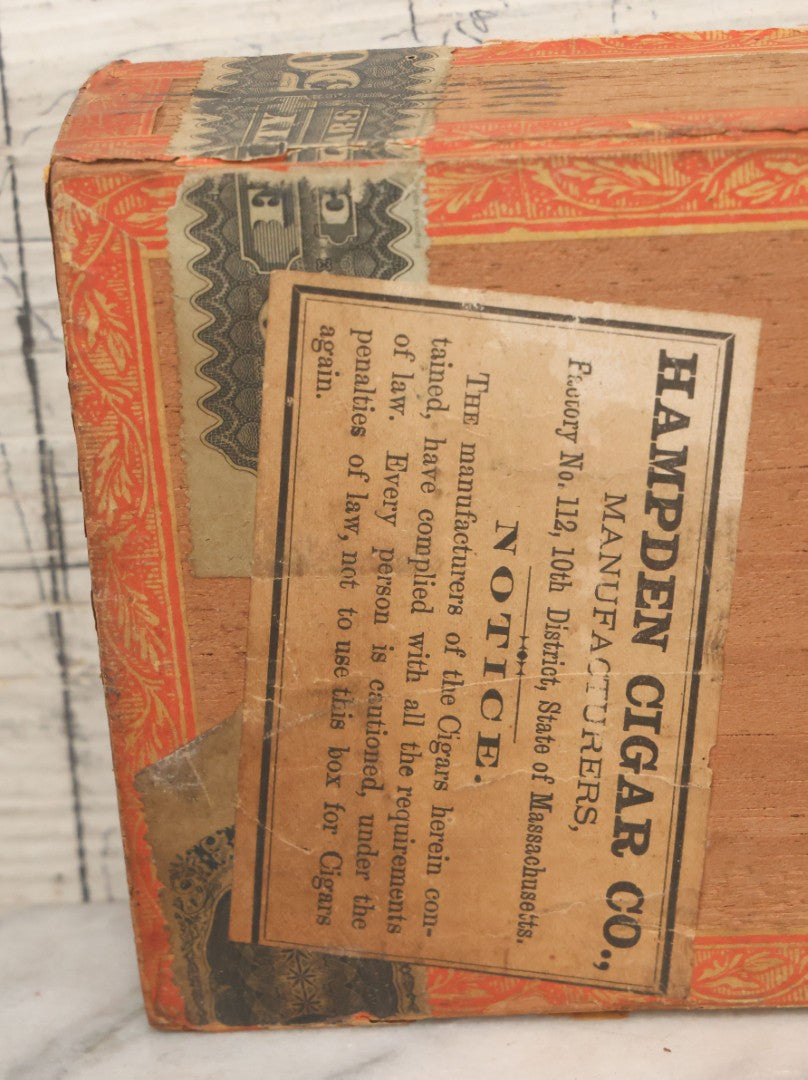 HAMPDEN CIGAR CO.,
MANUFACTURERS,
Factory No. 112, 10th District, State of Massachusetts.
NOTICE.
THE manufacturers of the Cigars herein con-
tained, have complied with all the requirements
of law. Every person is cautioned, under the
penalties of law, not to use this box for Cigars
again.